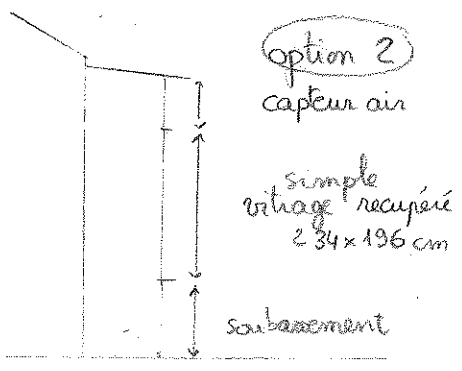 option 2
capteur air
simple
vitrage recupéré
234 x 196 cm
soubassement